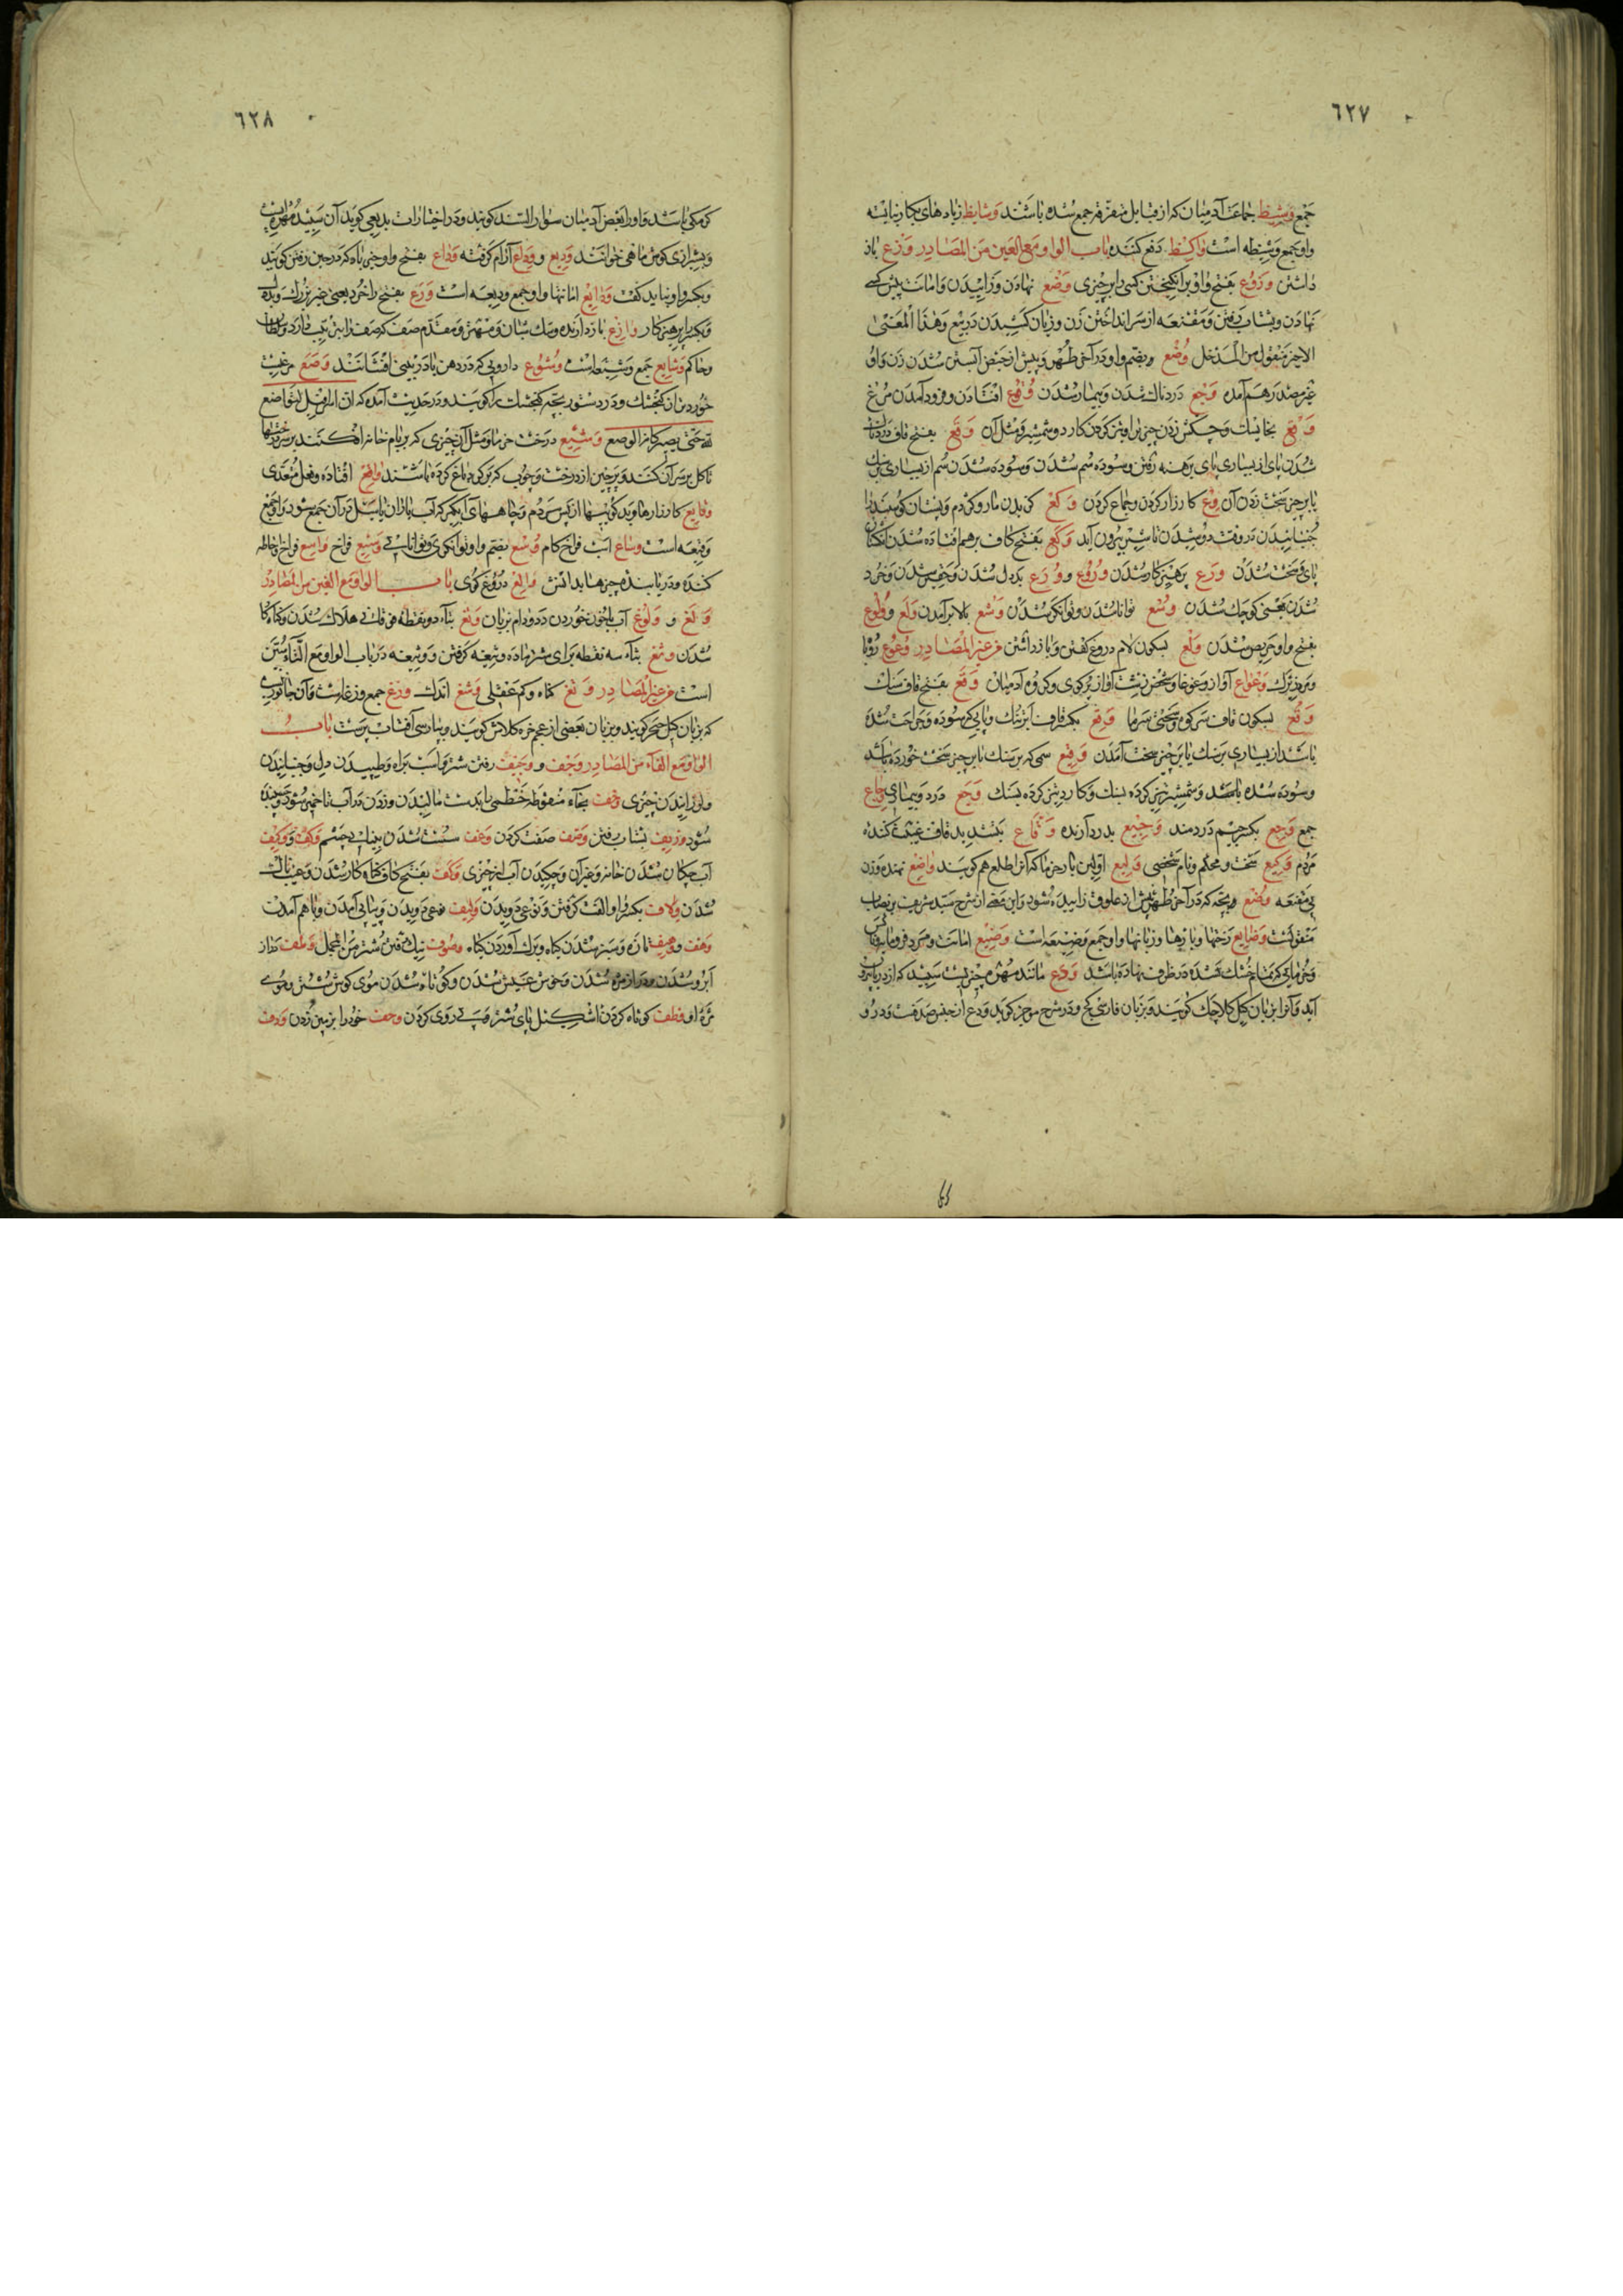 ٦٢٧
جمع وشیظ جماعت آدمیان که از قبایل متفرقه جمع شده باشند وشایظ زیادهای بکار نیایسته
واو جمع وشیظه است واکظ دفع کننده باب الواو مع العین من المصادر وزع باز
داشتن وزوع بفتح واو برانگیختن کسی را بر چیزی وضع نهادن و زاییدن و امانت پیش کسی
نهادن و بشتاب رفتن و مقنعه از سر انداختن زن و زیان کشیدن در بیع وهذا المعنی
الاخیر منقول من المدخل وضع وبضم واو در آخر طهر و پیش از حیض آبستن شدن زن واو
غیر مصدر هم آمده وجع دردناک شدن و بیمار شدن وقوع افتادن و فرود آمدن مرغ
وقع بخایسک و چکش زدن چیزی را و تیز کردن کارد و شمشیر و مثل آن وقع بفتح قاف دردناک
شدن پای از بسیاری پای برهنه رفتن و سوده سم شدن و سوده شدن سم از بسیاری بر سنک
یا بر چیز سخت زدن آن وقع کارزار کردن و جماع کردن وکع گزیدن مار و کژدم و پستان گوسپند را
جنبانیدن در وقت دوشیدن تا شیر بیرون آید وکع بفتح کاف بر هم افتاده شدن انگشتان
پای و سخت شدن ورع پرهیزکار شدن وروع و ورع بددل شدن و حقیر شدن و خرد
شدن یعنی کوچک شدن وسع توانا شدن و توانگر شدن وشع بالا برآمدن ولع و ولوع
بفتح واو حریص شدن ولع بسکون لام دروغ گفتن و باز داشتن من غیر المصادر وعوع روباه
وعواع آواز و غوغا و سخن زشت آواز گرگ و گروه آدمیان وقع بفتح قاف سنک
وقع بسکون قاف وقع بکسر قاف ابر تنک و پای که سوده و جراحت شده
باشد از بسیاری بر سنک یا بر چیز سخت آمدن وقیع سمی که بر سنک یا بر چیز سخت خورده باشد
و سوده شده باشد و شمشیر تیز کرده بسنک و کارد تیز کرده بسنک وجع درد و بیماری وجاع
جمع وجع بکسر جیم دردمند وجیع بدرد آرنده وقاع بتشدید قاف غیبت کننده
مردم وکیع سخت و محکم و نام شخصی ولیع اولین بار خرما که آنرا طلع هم گویند واضع نهنده و زن
بی مقنعه وضع و بچه که در آخر طهر پیش از علوق زاییده شود و این از شرح سید شریف بر نصاب
منقولست وضایع رختها و بارها و زیانها واو جمع وضیعه است وضیع امانت و مرد فرومایه
و خرمایی که خشک نشده در ظرف نهاده باشند ودع مانند مهره چیزیست سپید که از دریا بیرون
آید و آنرا بزبان گیل کلاچک گویند و بزبان فارسی کج و در شرح موجز گوید ودع از جنس صدفست و درو
٦٢٨
کرمکی باشد و او را بعضی آدمیان سوار السند گویند و در اختیارات بدیعی گوید آن سپید مهره است
و بشیرازی گوش ماهی خوانند ودیع و وداع آرام گرفته وداع بفتح واو چیزی که در حین رفتن گویند
و بکسر واو نباید گفت ودایع امانتها واو جمع ودیعه است ورع بفتح را
و بکسر پرهیزکار وازع باز دارنده و سک شبان و مهتر و مقدم صف که صف را بترتیب دارد
و حاکم وشایع جمع وشیعه است وشوع دارویی که در دهن یا در بینی افشانند وصع مرغیست
خوردتر از گنجشک و در دستور بچه گنجشک را گویند و در حدیث آمده که ان اسرافیل لیتواضع
لله حتی یصیر کانه الوصع وشیع درخت خرما و مثل آن چیزی که بر بام خانه افکنند
تا گل بر سر آن کنند و پرچین از درخت و چوب که بر گرد باغ کرده باشند واقع افتاده و فعل متعدی
وقایع کارزارها و بدگوییها از پس مردم و چاههای آبگیر که آب باران یا سیل در آن جمع شود و او جمع
وقیعه است وساع اسب فراخ گام وسع بضم واو توانگری و توانایی وسیع فراخ واسع فراخ و احاطه
کننده و دریابنده چیزها بدانش والع دروغ گوی باب الواو مع الغین من المصادر
ولغ و ولوغ آب یا خون خوردن دد و دام بزبان وتغ بتاء دو نقطه فوقانی هلاک شدن و گناه کار
شدن وثغ بثاء سه نقطه برای شتر ماده وثیغه گرفتن و وثیغه در باب الواو مع التاء
است من غیر المصادر وتغ گناه و کم عقلی وشغ اندک وزغ جمع وزغه است و آن جانوریست
که بزبان گیل گویند و بزبان بعضی از عجم خره کلاش گویند و بپارسی آفتاب پرست باب
الواو مع الفاء من المصادر وجف و وجیف رفتن شتر و اسب براه و طپیدن دل و جنبانیدن
و لرزانیدن چیزی وخف بخاء منقوطه خطمی یا بدست مالیدن و زدن در آب تا خمیر شود و چسبنده
شود وزیف بشتاب رفتن وصف صفت کردن وطف سست شدن بینایی چشم وکف و وکیف
آب چکان شدن خانه و غیر آن و چکیدن آب از چیزی وکف بفتح کاف گناه کار شدن و عیب ناک
شدن ولاف بکسر واو الفت گرفتن و نوعی دویدن ولیف نوعی دویدن و پیاپی آمدن و با هم آمدن
وهف و وهیف تازه و سبز شدن گیاه و برگ آوردن گیاه وصوف نیک رفتن شتر من المجمل وطف دراز
ابرو شدن و دراز مژه شدن و خوش عیش شدن و کوتاه شدن موی گوش شتر و موی
مژه او وظف کوتاه کردن اشکیل پای شتر و پی روی کردن وحف خود را بر زمین زدن ودف